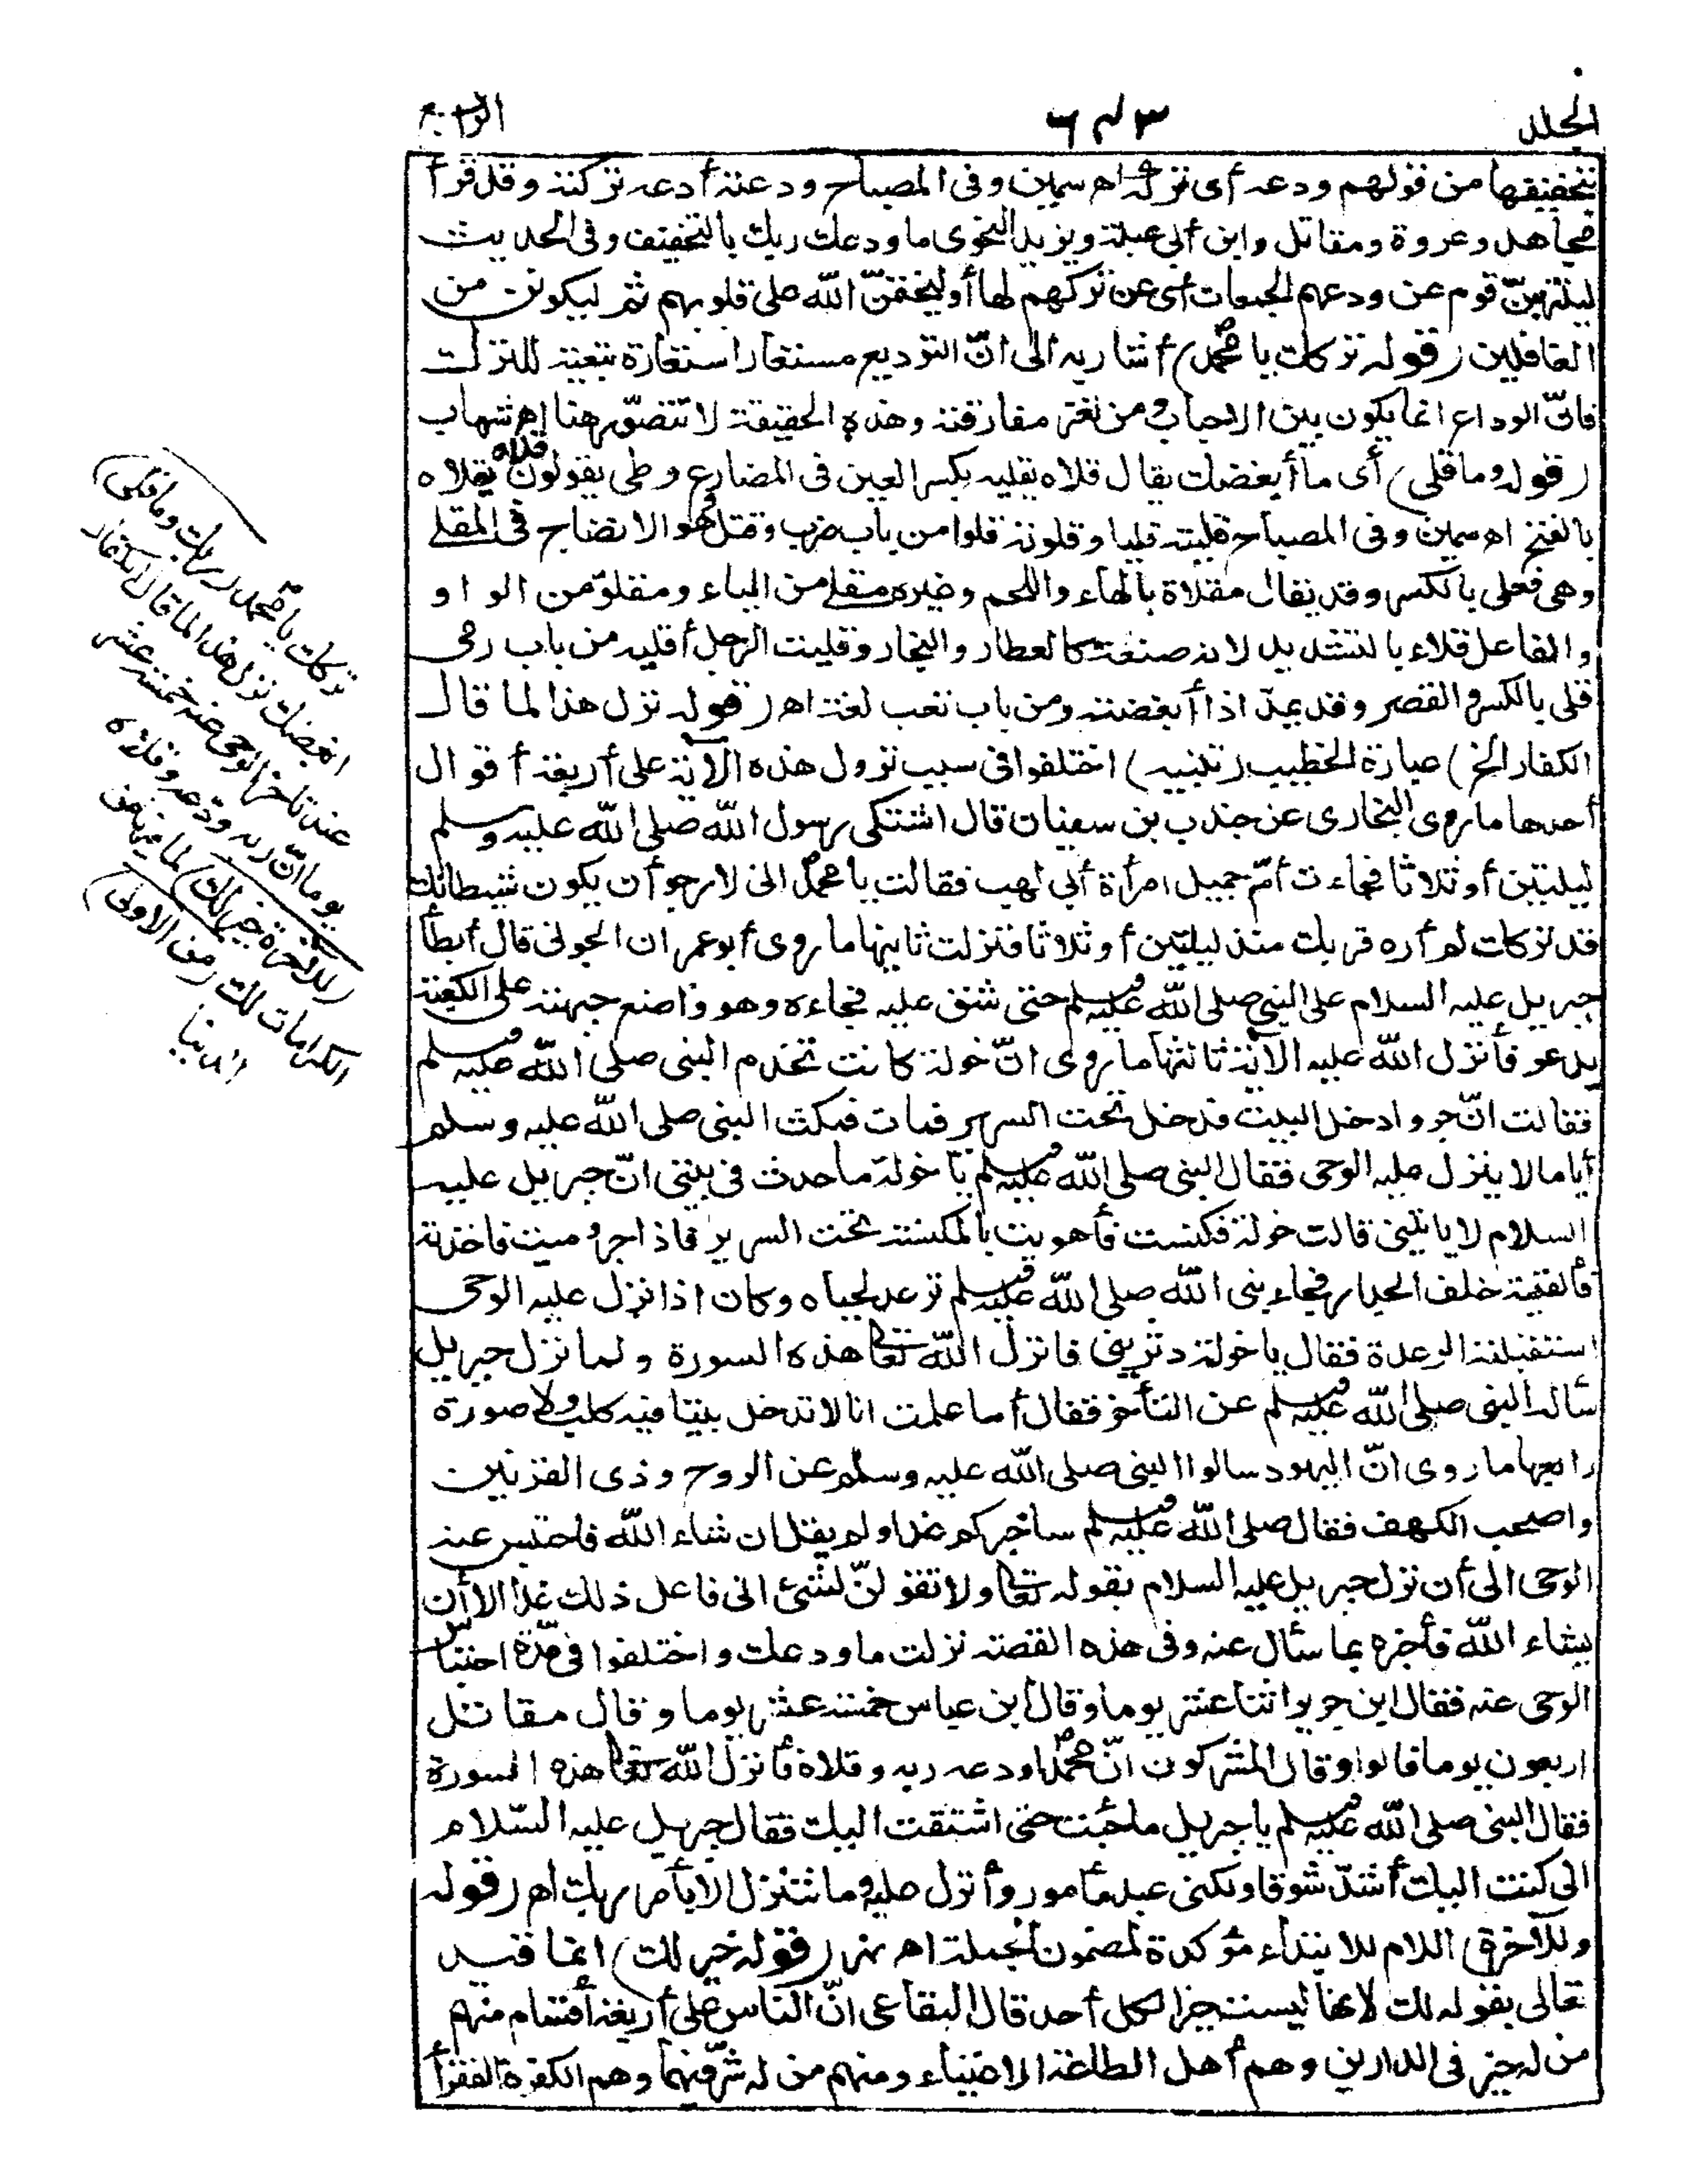 الجلد ٦٣٣ الرابع
بتخفيفها من قولهم ودعه أى تركه اه سمين وفى المصباح ودعته أدعه تركته وقد قرأ
مجاهد وعروة ومقاتل وابن أبى عبلة ويزيد النحوى ما ودعك ربك بالتخفيف وفى الحديث
لينتهينّ قوم عن ودعهم الجمعات أى عن تركهم لها أو ليختمنّ الله على قلوبهم ثم ليكونن من
الغافلين (قوله تركك يا محمد) أشار به الى انّ التوديع مستعار استعارة تبعية للترك
فانّ الوداع انما يكون بين الاحباب ومن تعز مفارقته وهذه الحقيقة لا تتصوّر هنا اه شهاب
(قوله وما قلى) أى ما أبغضك يقال قلاه يقليه بكسر العين فى المضارع وطى يقولون قلاه يقلاه
بالفتح اه سمين وفى المصباح قليته قليا وقلوته قلوا من باب ضرب وقتل وهو الانضاج فى المقلى
وهى مفعل بالكسر وقد يقال مقلاة بالهاء واللحم وغيره مقلى من الياء ومقلوّ من الواو
والفاعل قلاء بالتشديد لانه صنعة كالعطار والنجار وقليت الرجل أقليه من باب رمى
قلى بالكسر والقصر وقد يمدّ اذا أبغضته ومن باب تعب لغة اه (قوله نزل هذا لما قال
الكفار الخ) عبارة الخطيب (تنبيه) اختلفوا فى سبب نزول هذه الآية على أربعة أقوال
أحدها ما روى البخارى عن جندب بن سفيان قال اشتكى رسول الله صلى الله عليه وسلم
ليلتين أو ثلاثا فجاءت أمّ جميل امرأة أبى لهب فقالت يا محمد انى لارجو أن يكون شيطانك
قد تركك لم أره قربك منذ ليلتين أو ثلاثا فنزلت ثانيها ما روى أبو عمران الجونى قال أبطأ
جبريل عليه السلام على النبى صلى الله عليه وسلم حتى شق عليه فجاءه وهو واضع جبهته على الكعبة
يدعو فأنزل الله عليه الآية ثالثها ما روى انّ خولة كانت تخدم النبى صلى الله عليه وسلم
فقالت انّ جروا دخل البيت فدخل تحت السرير فمات فمكث النبى صلى الله عليه وسلم
أياما لا ينزل عليه الوحى فقال النبى صلى الله عليه وسلم يا خولة ما حدث فى بيتى انّ جبريل عليه
السلام لا يأتينى قالت خولة فكنست فأهويت بالمكنسة تحت السرير فاذا جرو ميت فاخذته
فألقيته خلف الجدار فجاء نبى الله صلى الله عليه وسلم ترعد لحياه وكان اذا نزل عليه الوحى
استقبلته الرعدة فقال يا خولة دثرينى فانزل الله تعالى هذه السورة ولما نزل جبريل
سأله النبى صلى الله عليه وسلم عن التأخر فقال أما علمت انا لا ندخل بيتا فيه كلب ولا صورة
رابعها ما روى انّ اليهود سالوا النبى صلى الله عليه وسلم عن الروح وذى القرنين
واصحب الكهف فقال صلى الله عليه وسلم ساخبركم غدا ولم يقل ان شاء الله فاحتبس عنه
الوحى الى أن نزل جبريل عليه السلام بقوله تعالى ولا تقولنّ لشئ انى فاعل ذلك غدا الا أن
يشاء الله فأخبره بما سئل عنه وفى هذه القصة نزلت ما ودعك واختلفوا فى مدّة احتباس
الوحى عنه فقال ابن جريج اثنا عشر يوما وقال ابن عباس خمسة عشر يوما وقال مقاتل
اربعون يوما قالوا وقال المشركون انّ محمدا ودعه ربه وقلاه فأنزل الله تعالى هذه السورة
فقال النبى صلى الله عليه وسلم يا جبريل ما جئت حتى اشتقت اليك فقال جبريل عليه السّلام
انى كنت اليك أشدّ شوقا ولكنى عبد مأمور وأنزل عليه وما نتنزل الا بأمر ربك اه (قوله
وللآخرة) اللام للابتداء مؤكدة لمضمون الجملة اه نهر (قوله خير لك) انما قيد
تعالى بقوله لك لانها ليست خيرا لكل أحد قال البقاعى انّ الناس على أربعة أقسام منهم
من له خير فى الدارين وهم أهل الطاعة الاغنياء ومنهم من له شرّ فيهما وهم الكفرة الفقراء
تركك يا محمد (ربك وما قلى)
ابغضك نزل هذا لما قال الكفار
عند تاخر الوحى عنه خمسة عشر
يوما انّ ربه ودّعه وقلاه
(وللآخرة خير لك) لما فيها من
الكرامات لك (من الاولى)
الدنيا